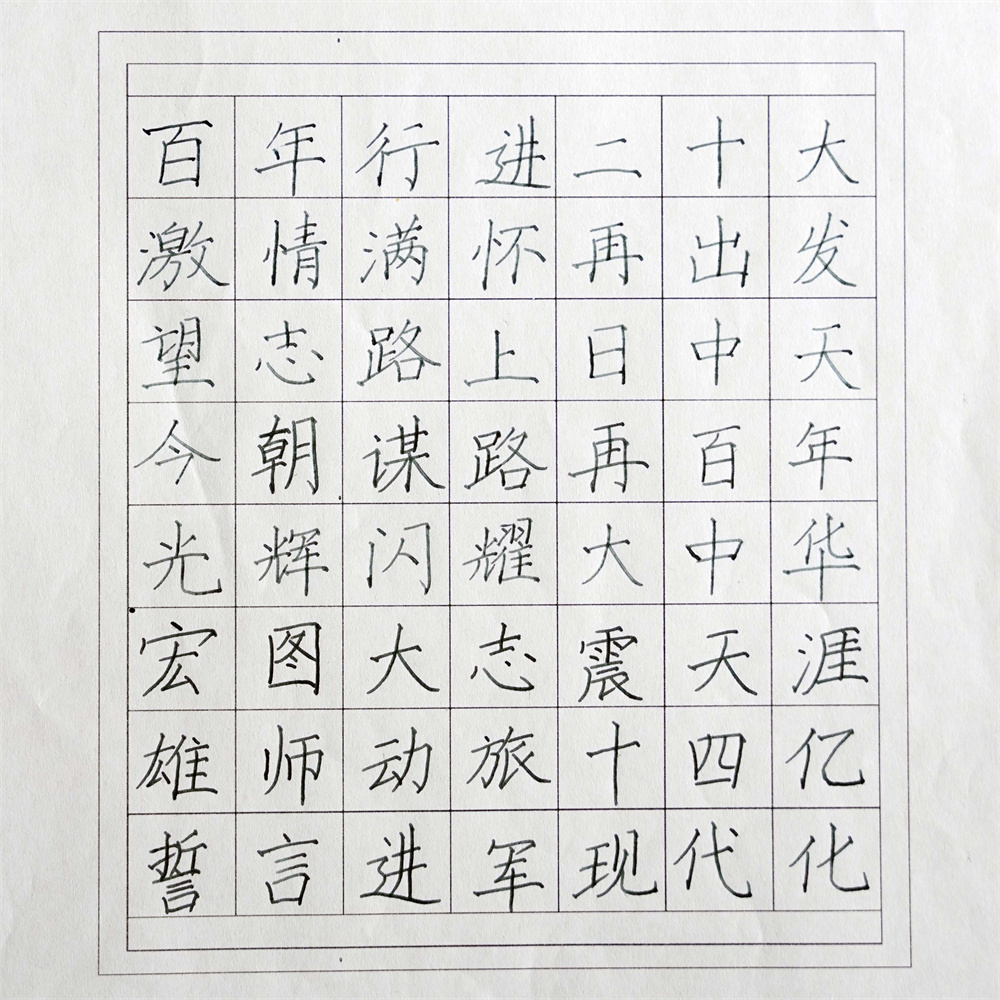 百年行进二十大
激情满怀再出发
望志路上日中天
今朝谋路再百年
光辉闪耀大中华
宏图大志震天涯
雄师动旅十四亿
誓言进军现代化